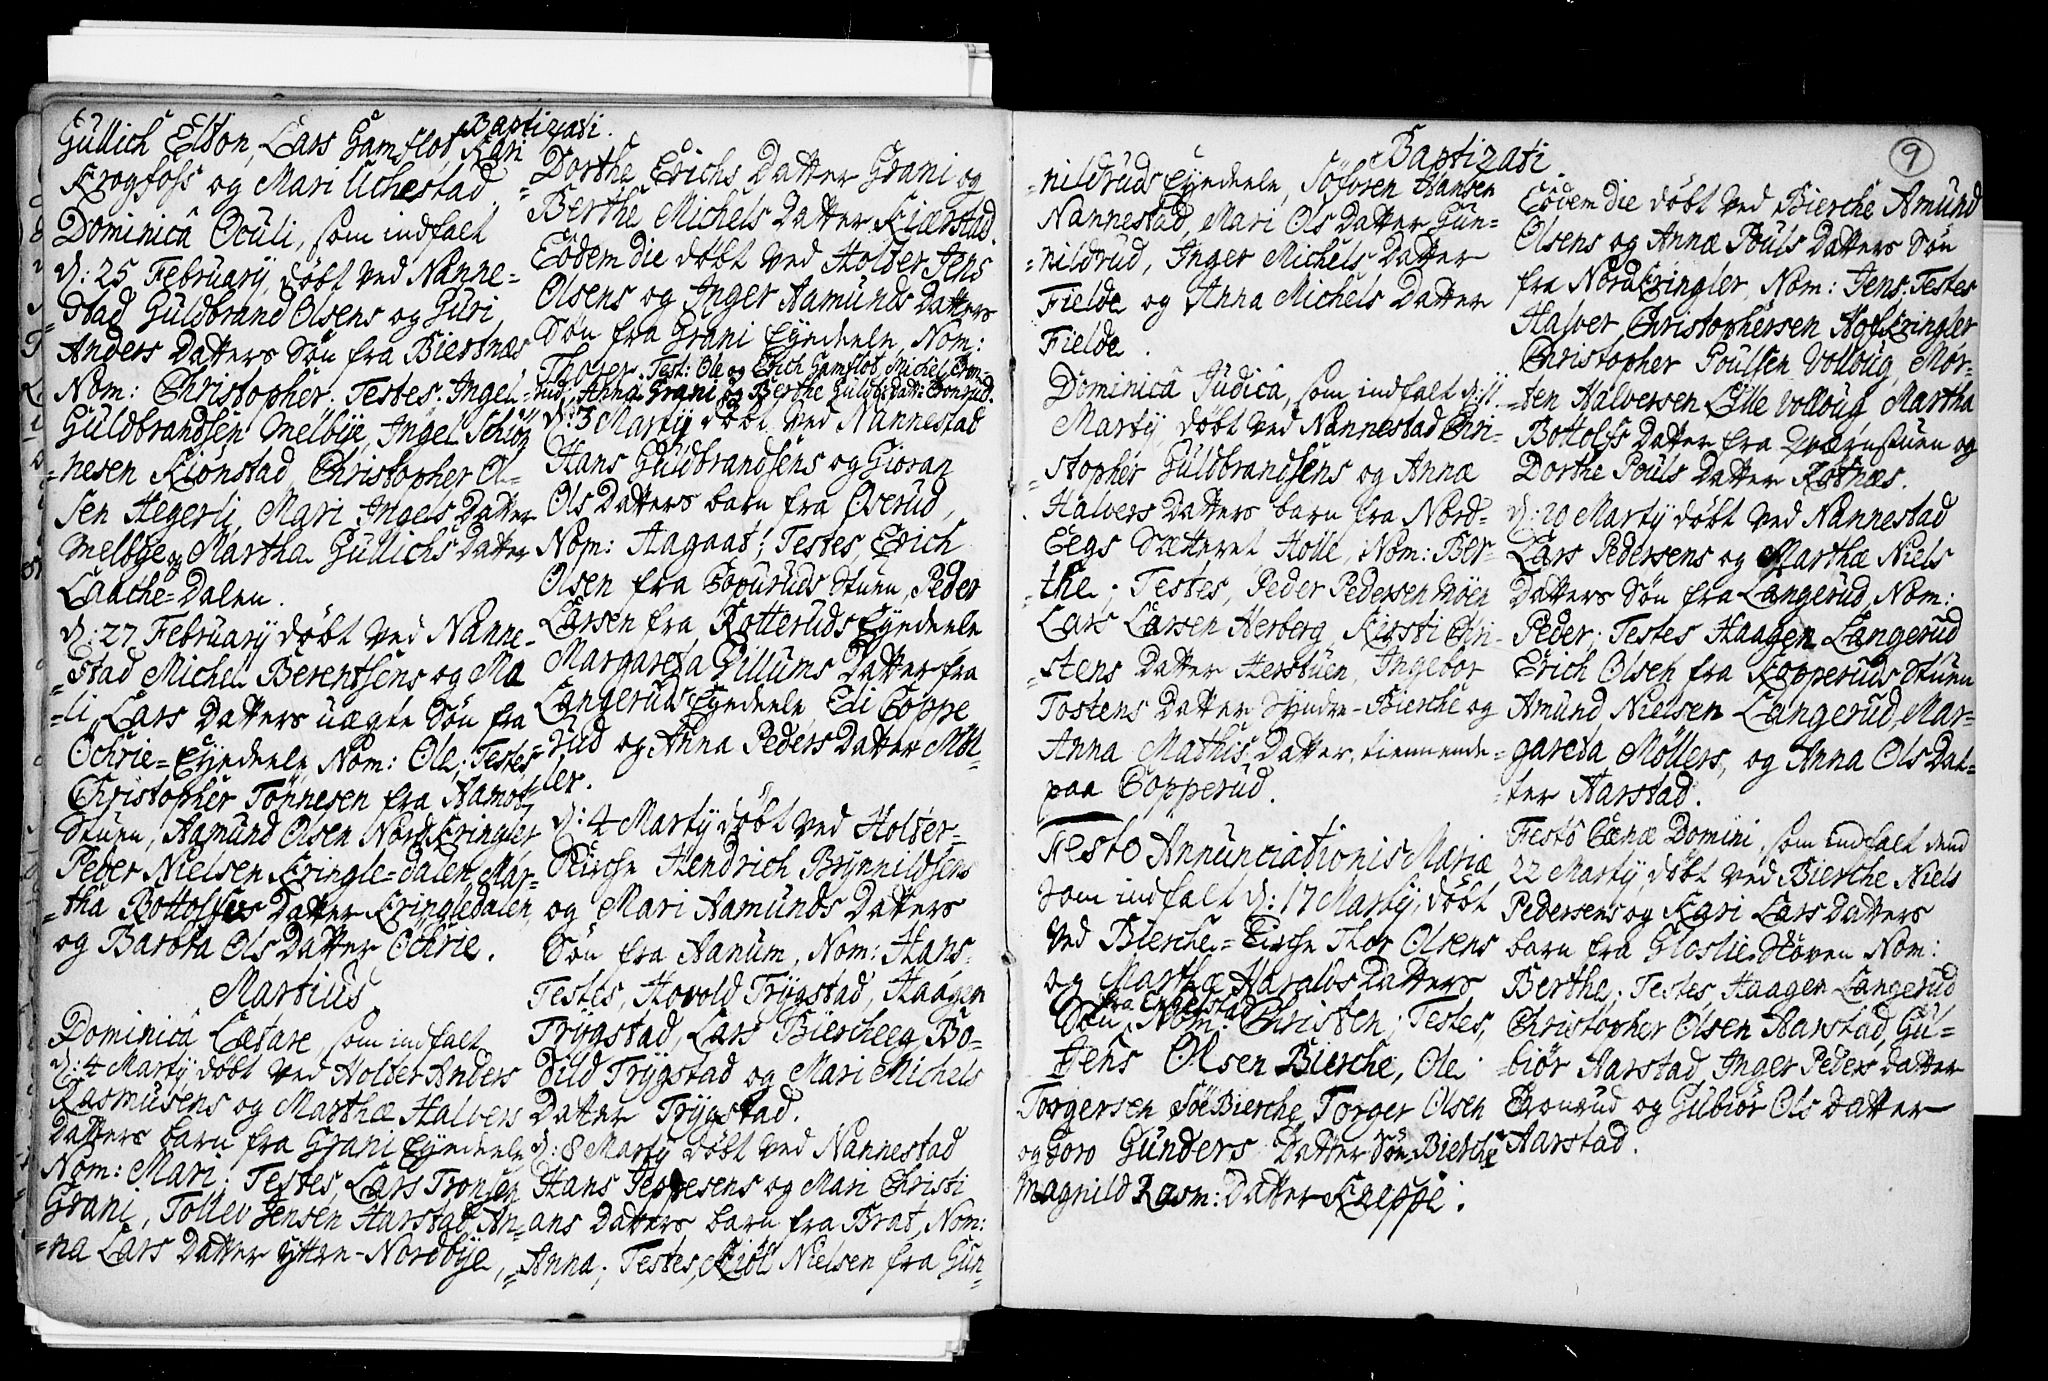 Baptizati.
Gullich Elton, Lars Gamflob, Kari
Krogfoss og Mari Uchestad.
Dominicâ Oculi, som indfalt
d: 25 February, döbt ved Nanne-
=stad Guldbrand Olsens og Guri
Anders Datters Sön fra Biertnæs
Nom: Christopher. Testes. Ingel-
Guldbrandsen Melbÿe, Ingel Schön
=nesen Kiönstad, Christopher Ol-
sen Hegerli, Mari Ingels Datter
Melbÿe og Martha Gullichs Datter
Laache=Dalen.
d: 27 February döbt ved Nanne-
=stad Michel Berentsens og Ma
=li Lars Datters uægte Sön fra
Ochrie=Eyedeele, Nom: Ole; Testes
Christopher Tönnesen fra Aamot
Stuen, Aamund Olsen Nord Kringler
Peder Nielsen Kringle=dalen, Mar-
=tha Bottolfus Datter Kringledalen,
og Barbra Ols Datter Ochrie.
Martius
Dominicâ Lætare, som indfalt
d: 4 Marty döbt ved Holder Anders
Rasmusens og Marthæ Halvers
Datters barn fra Grani Eyedeele
Nom: Mari; Testes, Lars Tronsen
Grani, Tollev Jensen Harstad, An-
=na Lars Datter ÿttre-Nordbÿe,
Dorthe Erichs Datter Grani og
Berthe Michels Datter Kiærstad.
Eodem die döbt ved Holder Jens
Olsens og Inger Aamunds Datters
Sön fra Grani Eyedeele, Nom:
Thorer. Test: Ole og Erich Gamflob, Michel Tron-
rud, Anna Grani og Berthe Guldb: datt: Tronrud.
d: 3 Marty döbt ved Nannestad
Hans Guldbrandsens og Gioran
Ols Datters barn fra Overud,
Nom: Aagaat; Testes, Erich
Olsen fra Copuruds Stuen, Peder
Larsen fra Rotteruds Eyedeele
Margareta Pillums Datter fra
Langeruds Eyedeele, Eli Coppe
=rud og Anna Peders Datter Möl-
ler.
d: 4 Marty döbt ved Holder-
Kirche Hendrich Brynnildsens
og Mari Aamunds Datters
Sön fra Aanum, Nom: Hans.
Testes, Hovold Trÿgstad, Haagen
Trÿgstad, Lars Biercheeg, Bo-
dild Trÿgstad og Mari Michels
Datter Trÿgstad.
d: 8 Marty döbt ved Nannestad
Hans Jeppesens og Mari Christi
ans Datters barn fra Brat, Nom:
=Anna; Testes, Kiöl Nielsen fra Gun-
9
Baptizati.
=nildruds Eyedeele, Söforen Hansen
Nannestad, Mari Ols Datter Gun-
=nildrud, Inger Michels Datter
Fielde og Anna Michels Datter
Fielde.
Dominicâ Judica, som indfalt d: 11.
Marty döbt ved Nannestad Chri-
=stopher Guldbrandsens og Annæ
Halvers Datters barn fra Nord-
Eegs Sætteret Holle, Nom: Ber-
=the; Testes, Peder Pedersen Moen
Lars Larsen Herberg, Kirsti Chri-
=stens Datter Herstuen, Ingebor
Tostens Datter Syndre-Bierche og
Anna Mathis Datter, tiennende-
paa Copperud.
Festo Annunciationis Mariæ
som indfalt d: 17 Marty, döbt
ved Bierche=Kirche Thor Olsens
og Marthæ Haralds Datters
fra Engelstad
Sön, Nom: Christen; Testes,
Jens Olsen Bierche, Ole
Torgersen Söe Bierche, Torger Olsen
og Goro Gunders Datter Sön Bierche
Magnild Rasm: Datter Kneppe.
Eodem die döbt ved Bierche Amund
Olsens og Annæ Pouls Datters Sön
fra Nord Kringler, Nom: Jens; Testes
Halver Christophersen Nof Kringler
Christopher Poulsen Vollbug, Mor-
=ten Halversen Lille Vollbug, Martha
Bottolfs Datter fra Qværnstuen og
Dorthe Pouls Datter Rotnæs.
d: 20 Marty döbt ved Nannestad
Lars Pedersens og Marthæ Niels
Datters Sön fra Langerud, Nom:
Peder; Testes Haagen Langerud
Erich Olsen fra Kopperuds Stuen
Amund Nielsen Langerud, Mar-
gareta Möllers, og Anna Ols Dat-
=ter Aarstad.
Festo Cænæ Domini, som indfalt dend
22 Marty, döbt ved Bierche Niels
Pedersens og Kari Lars Datters
barn fra Gloslie Skoven Nom:
Berthe; Testes, Haagen Langerud
Christopher Olsen Aarstad, Gul-
=biör Aarstad, Inger Peders Datter
Tronrud og Gubiör Ols Datter
Aarstad.